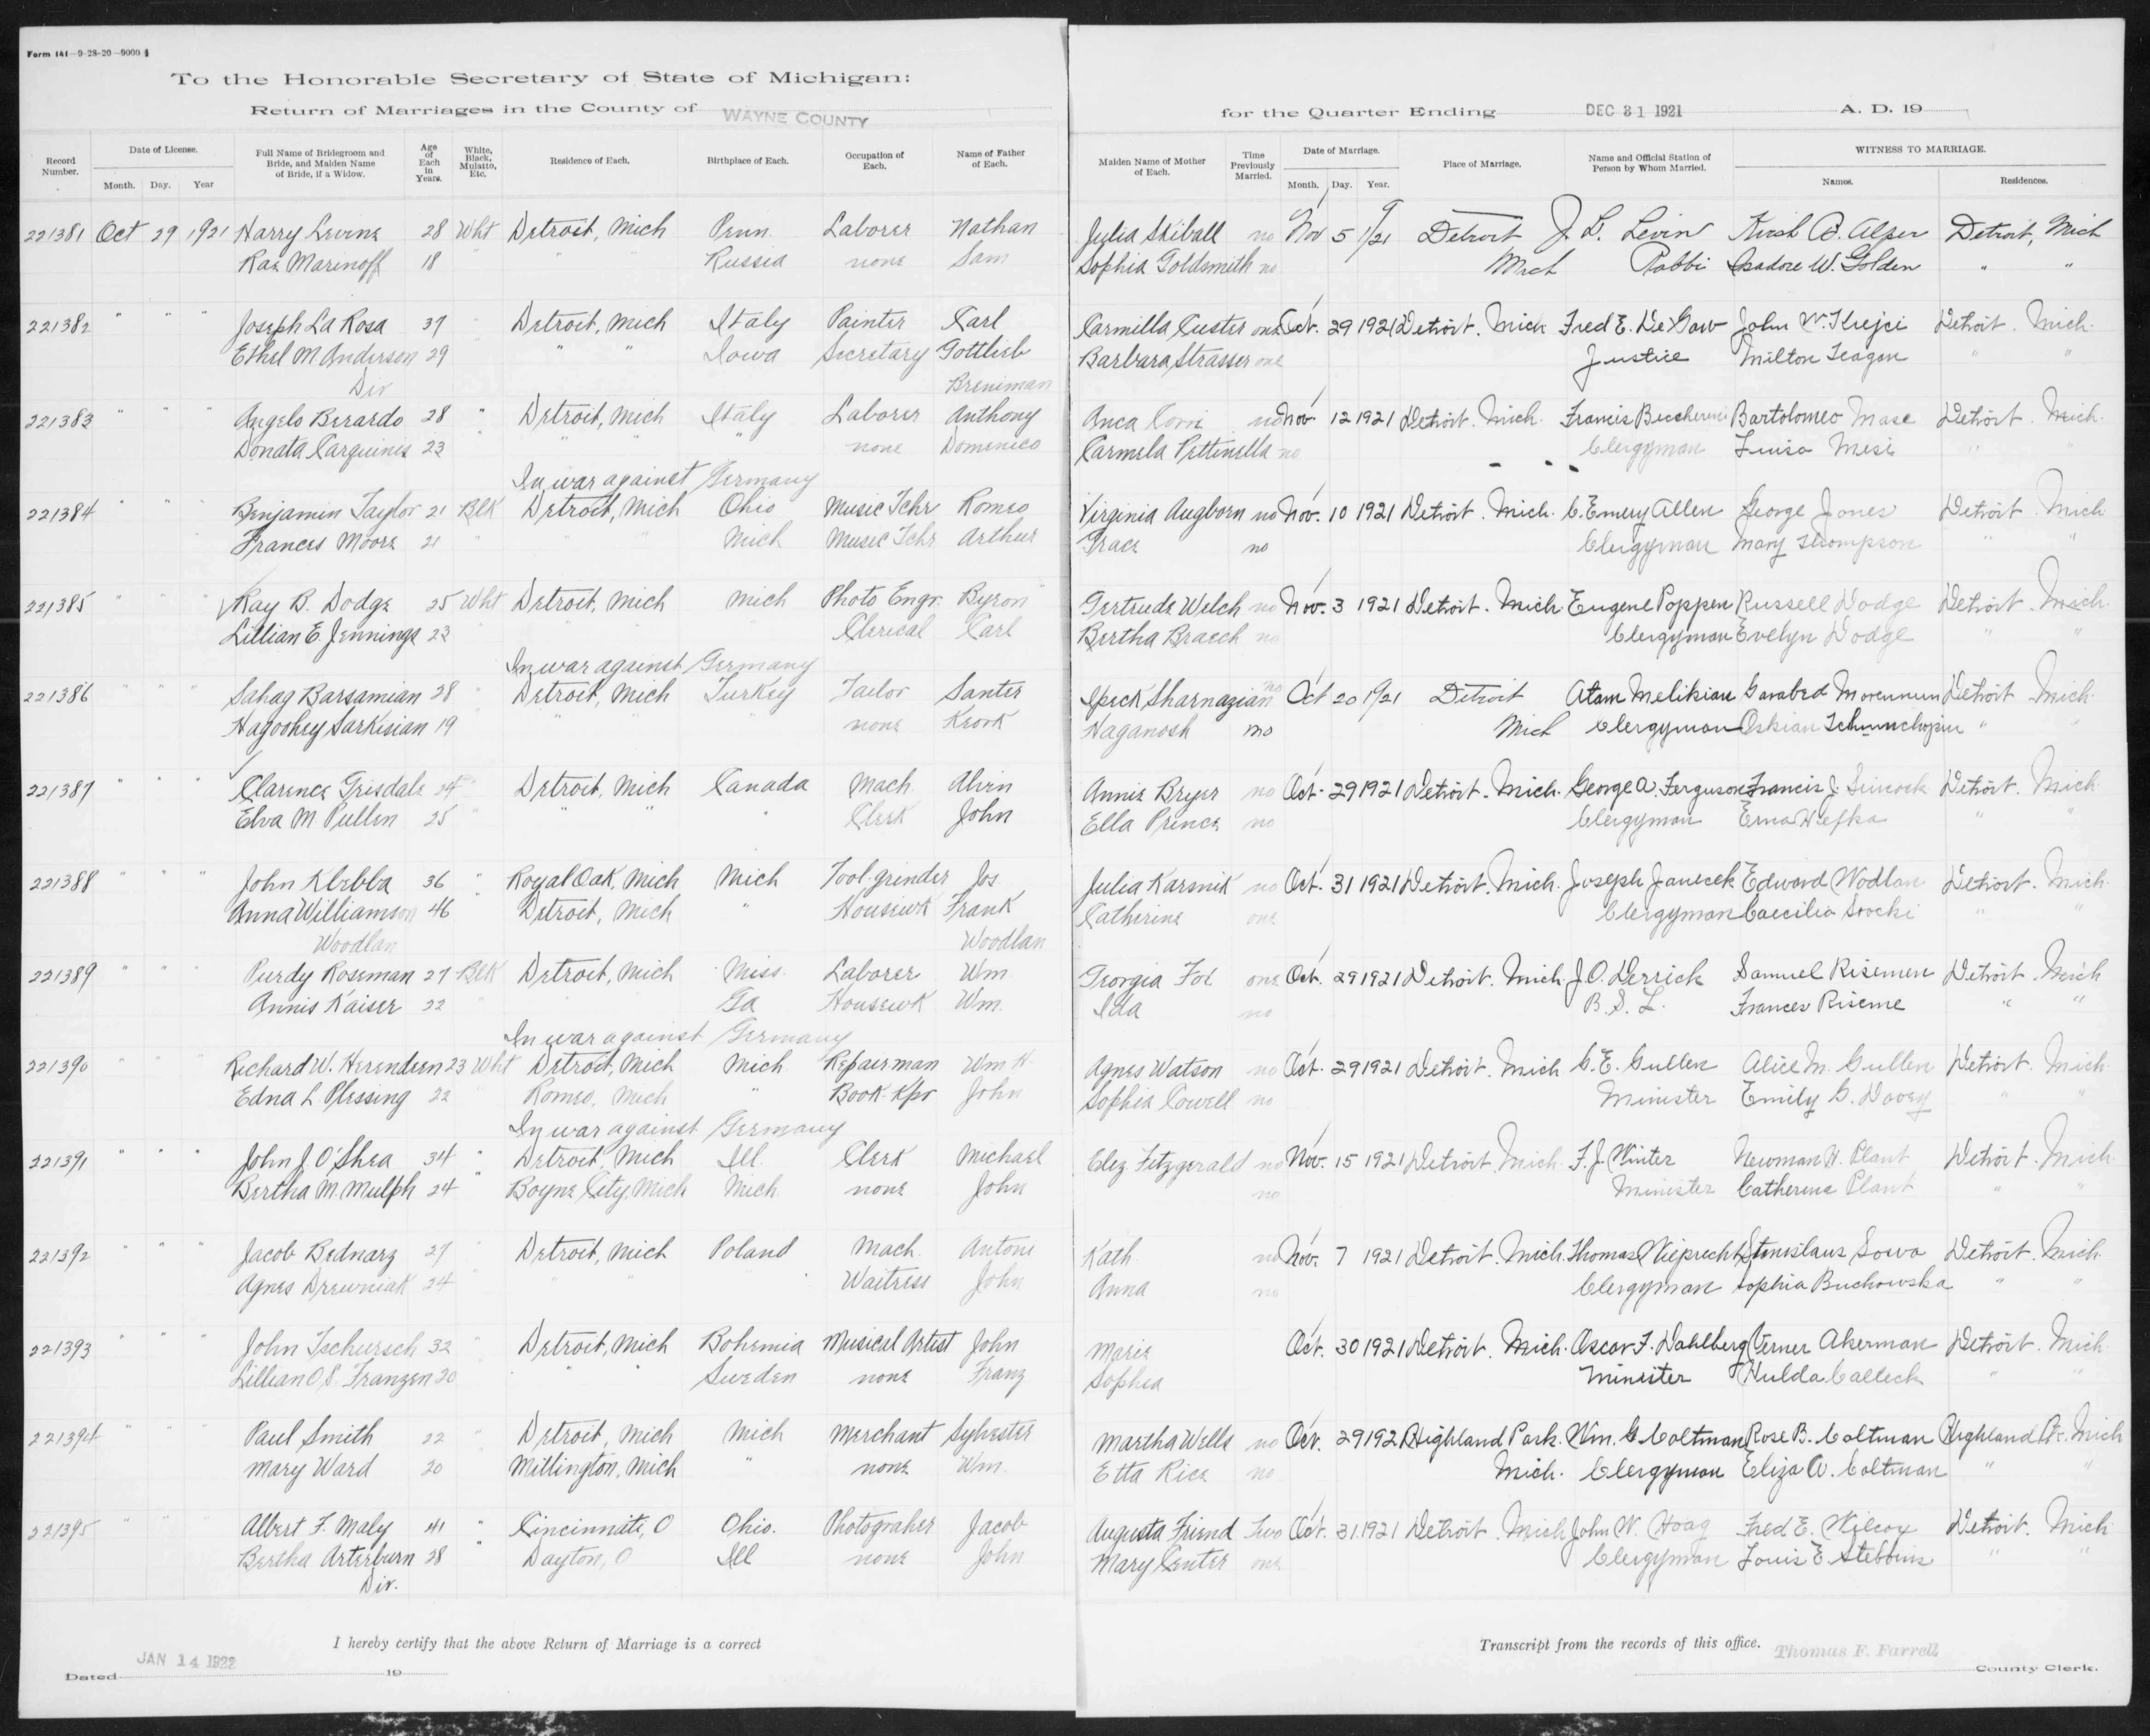 Form 141—9-28-20—9000
To the Honorable Secretary of State of Michigan:
Return of Marriages in the County of WAYNE COUNTY for the Quarter Ending DEC 31 1921 A. D. 19
Record Number. Date of License. Month. Day. Year Full Name of Bridegroom and Bride, and Maiden Name of Bride, if a Widow. Age of Each in Years. White, Black, Mulatto, Etc. Residence of Each. Birthplace of Each. Occupation of Each. Name of Father of Each. Maiden Name of Mother of Each. Time Previously Married. Date of Marriage. Month. Day. Year. Place of Marriage. Name and Official Station of Person by Whom Married. WITNESS TO MARRIAGE. Names. Residences.
221381 Oct 29 1921 Harry Levine 28 Wht Detroit, Mich Penn. Laborer Nathan Julia Skiball no Nov 5 1921 Detroit J. L. Levin Alper Detroit, Mich
Rae Marinoff 18 " " Russia none Sam Sophia Goldsmith no Mich Rabbi Isadore W. Golden " "
221382 " " " Joseph La Rosa 37 Detroit, Mich Italy Painter Carl Carmilla Custer one Oct. 29 1921 Detroit. Mich Fred E. De Gaw John W. Krejci Detroit. Mich.
Ethel M Anderson 29 " " Iowa Secretary Gottlieb Barbara Strasser one Justice Milton Teagan " "
Div Breniman
221383 " " " Angelo Berardo 28 " Detroit, Mich Italy Laborer Anthony Anca no Nov. 12 1921 Detroit. Mich. Francis Beccherini Bartolomeo Mase Detroit. Mich.
Donata Carquines 23 " " " none Domenico Carmela Pettinella no Clergyman Luisa Mesi "
In war against Germany
221384 " " " Benjamin Taylor 21 Blk Detroit, Mich Ohio Music Tchr Romeo Virginia Augborn no Nov. 10 1921 Detroit. Mich. C. Emery Allen George Jones Detroit. Mich
Frances Moore 21 " " " Mich Music Tchr Arthur Grace no Clergyman Mary Thompson " "
221385 " " " Ray B. Dodge 25 Wht Detroit, Mich Mich Photo Engr. Byron Gertrude Welch no Nov. 3 1921 Detroit. Mich. Eugene Poppen Russell Dodge Detroit. Mich.
Lillian E. Jennings 23 " " " Clerical Carl Bertha Braech no Clergyman Evelyn Dodge " "
In war against Germany
221386 " " " Sahag Barsamian 28 " Detroit, Mich Turkey Tailor Santer Speck Sharnazian no Oct 20 1921 Detroit Atam Melikian Garabed Detroit Mich.
Hagoohey Sarkisian 19 " " " none Keork Haganosh no Mich Clergyman Oskian "
221387 " " " Clarence Grisdale 24 " Detroit, Mich Canada Mach. Alvin Annie Bryer no Oct. 29 1921 Detroit. Mich. George A. Ferguson Francis J. Sincock Detroit. Mich.
Elva M Pullen 25 " " " " Clerk John Ella Prince no Clergyman Erna Wefka " "
221388 " " " John Klebba 36 " Royal Oak, Mich Mich Tool-grinder Jos. Julia Karsnik no Oct. 31 1921 Detroit. Mich. Joseph Janecek Edward Wodlan Detroit. Mich.
Anna Williamson 46 " Detroit, Mich " Housewk Frank Catherine one Clergyman Caecilia Soocki " "
Woodlan Woodlan
221389 " " " Purdy Roseman 27 Blk Detroit, Mich Miss. Laborer Wm. Georgia Fox one Oct. 29 1921 Detroit. Mich. J. O. Derrick Samuel Risemen Detroit. Mich
Annis Kaiser 22 " " " Ga Housewk Wm. Ida no B. S. L. Frances Riseme " "
In war against Germany
221390 " " " Richard W. Herendeen 23 Wht Detroit, Mich Mich Repairman Wm H Agnes Watson no Oct. 29 1921 Detroit. Mich C. E. Gullen Alice M. Gullen Detroit. Mich.
Edna L. Plessing 22 " Romeo, Mich " Book-Kpr John Sophia Cowell no Minister Emily G. Davey " "
In war against Germany
221391 " " " John J. O'Shea 34 " Detroit, Mich Ill. Clerk Michael Eliz Fitzgerald no Nov. 15 1921 Detroit. Mich F. J. Winter Newman H. Plant Detroit. Mich
Bertha M. Mulph 24 " Boyne City, Mich Mich. none John no Minister Catherine Plant " "
221392 " " " Jacob Bednarz 27 " Detroit, Mich Poland Mach. Antoni Kath. no Nov. 7 1921 Detroit. Mich. Thomas Wieprecht Stanislaus Sowa Detroit. Mich.
Agnes Drewniak 24 " " " " Waitress John Anna no Clergyman Sophia Buchowska " "
221393 " " " John Tschursch 32 " Detroit, Mich Bohemia Musical Artist John Marie Oct. 30 1921 Detroit. Mich. Oscar F. Dahlberg Verner Akerman Detroit. Mich.
Lillian O.S. Franzen 20 " " Sweden none Franz Sophia Minister Hulda Calleck " "
221394 " " " Paul Smith 22 " Detroit, Mich Mich Merchant Sylvester Martha Wells no Oct. 29 1921 Highland Park. Wm. G. Coltman Rose B. Coltman Highland Pk. Mich
Mary Ward 20 Millington, Mich " none Wm. Etta Rice no Mich. Clergyman Eliza A. Coltman " "
221395 " " " Albert F. Maly 41 " Cincinnati, O Ohio. Photograher Jacob Augusta Friend Two Oct. 31 1921 Detroit. Mich John W. Hoag Fred E. Wilcox Detroit. Mich.
Bertha Arterburn 28 " Dayton, O Ill none John Mary Center one Clergyman Louis E. Stebbins " "
Div.
I hereby certify that the above Return of Marriage is a correct Transcript from the records of this office. Thomas F. Farrell
Dated JAN 14 1922 19 County Clerk.